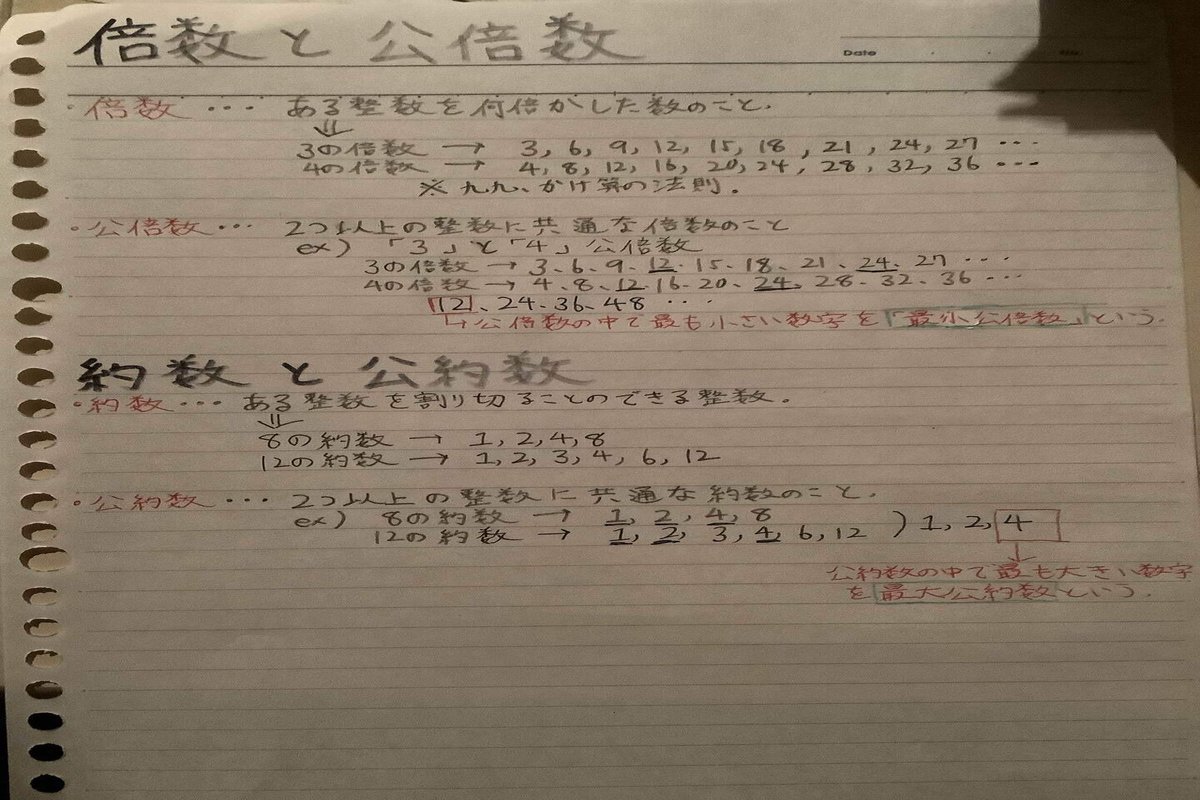 倍数と公倍数
Date
・倍数 ・・・ ある整数を何倍かした数のこと.
⇓
3の倍数 → 3, 6, 9, 12, 15, 18, 21, 24, 27 ・・・
4の倍数 → 4, 8, 12, 16, 20, 24, 28, 32, 36 ・・・
※ 九九、かけ算の法則.
・公倍数・・・ 2つ以上の整数に共通な倍数のこと
ex) 「3」と「4」公倍数
3の倍数 → 3、6、9、12、15、18、21、24、27 ・・・
4の倍数 → 4、8、12、16、20、24、28、32、36 ・・・
12、24、36、48 ・・・
↳公倍数の中で最も小さい数字を「最小公倍数」という.
約数と公約数
・約数・・・ ある整数を割り切ることのできる整数.
⇓
8の約数 → 1, 2, 4, 8
12の約数 → 1, 2, 3, 4, 6, 12
・公約数 ・・・ 2つ以上の整数に共通な約数のこと.
ex) 8の約数 → 1, 2, 4, 8
12の約数 → 1, 2, 3, 4, 6, 12 ) 1, 2, 4
↓
公約数の中で最も大きい数字
を最大公約数という.